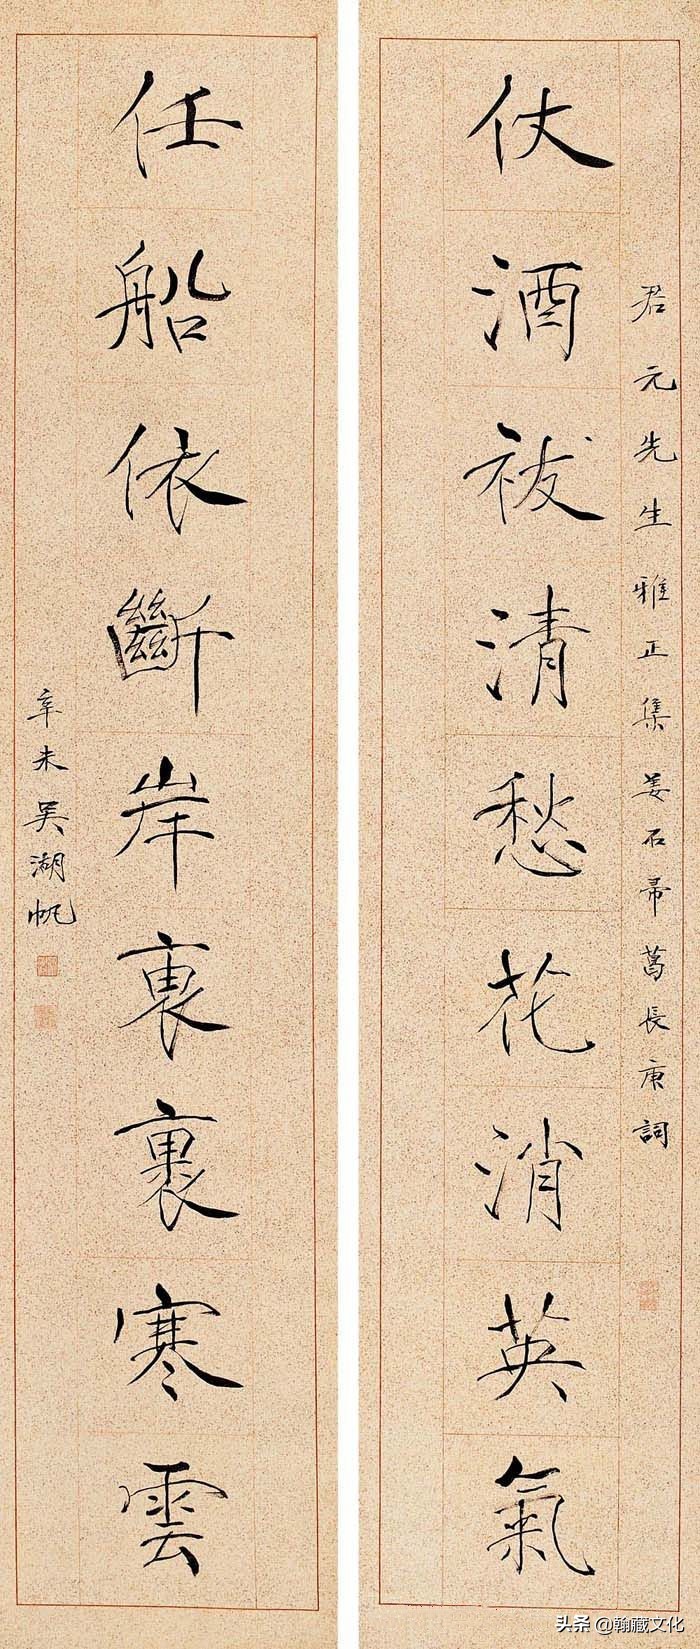 君元先生雅正集姜石帚葛長庚詞
仗酒祓清愁花消英氣
任船依斷岸袖裹寒雲
辛未吳湖帆
头条 @翰藏文化